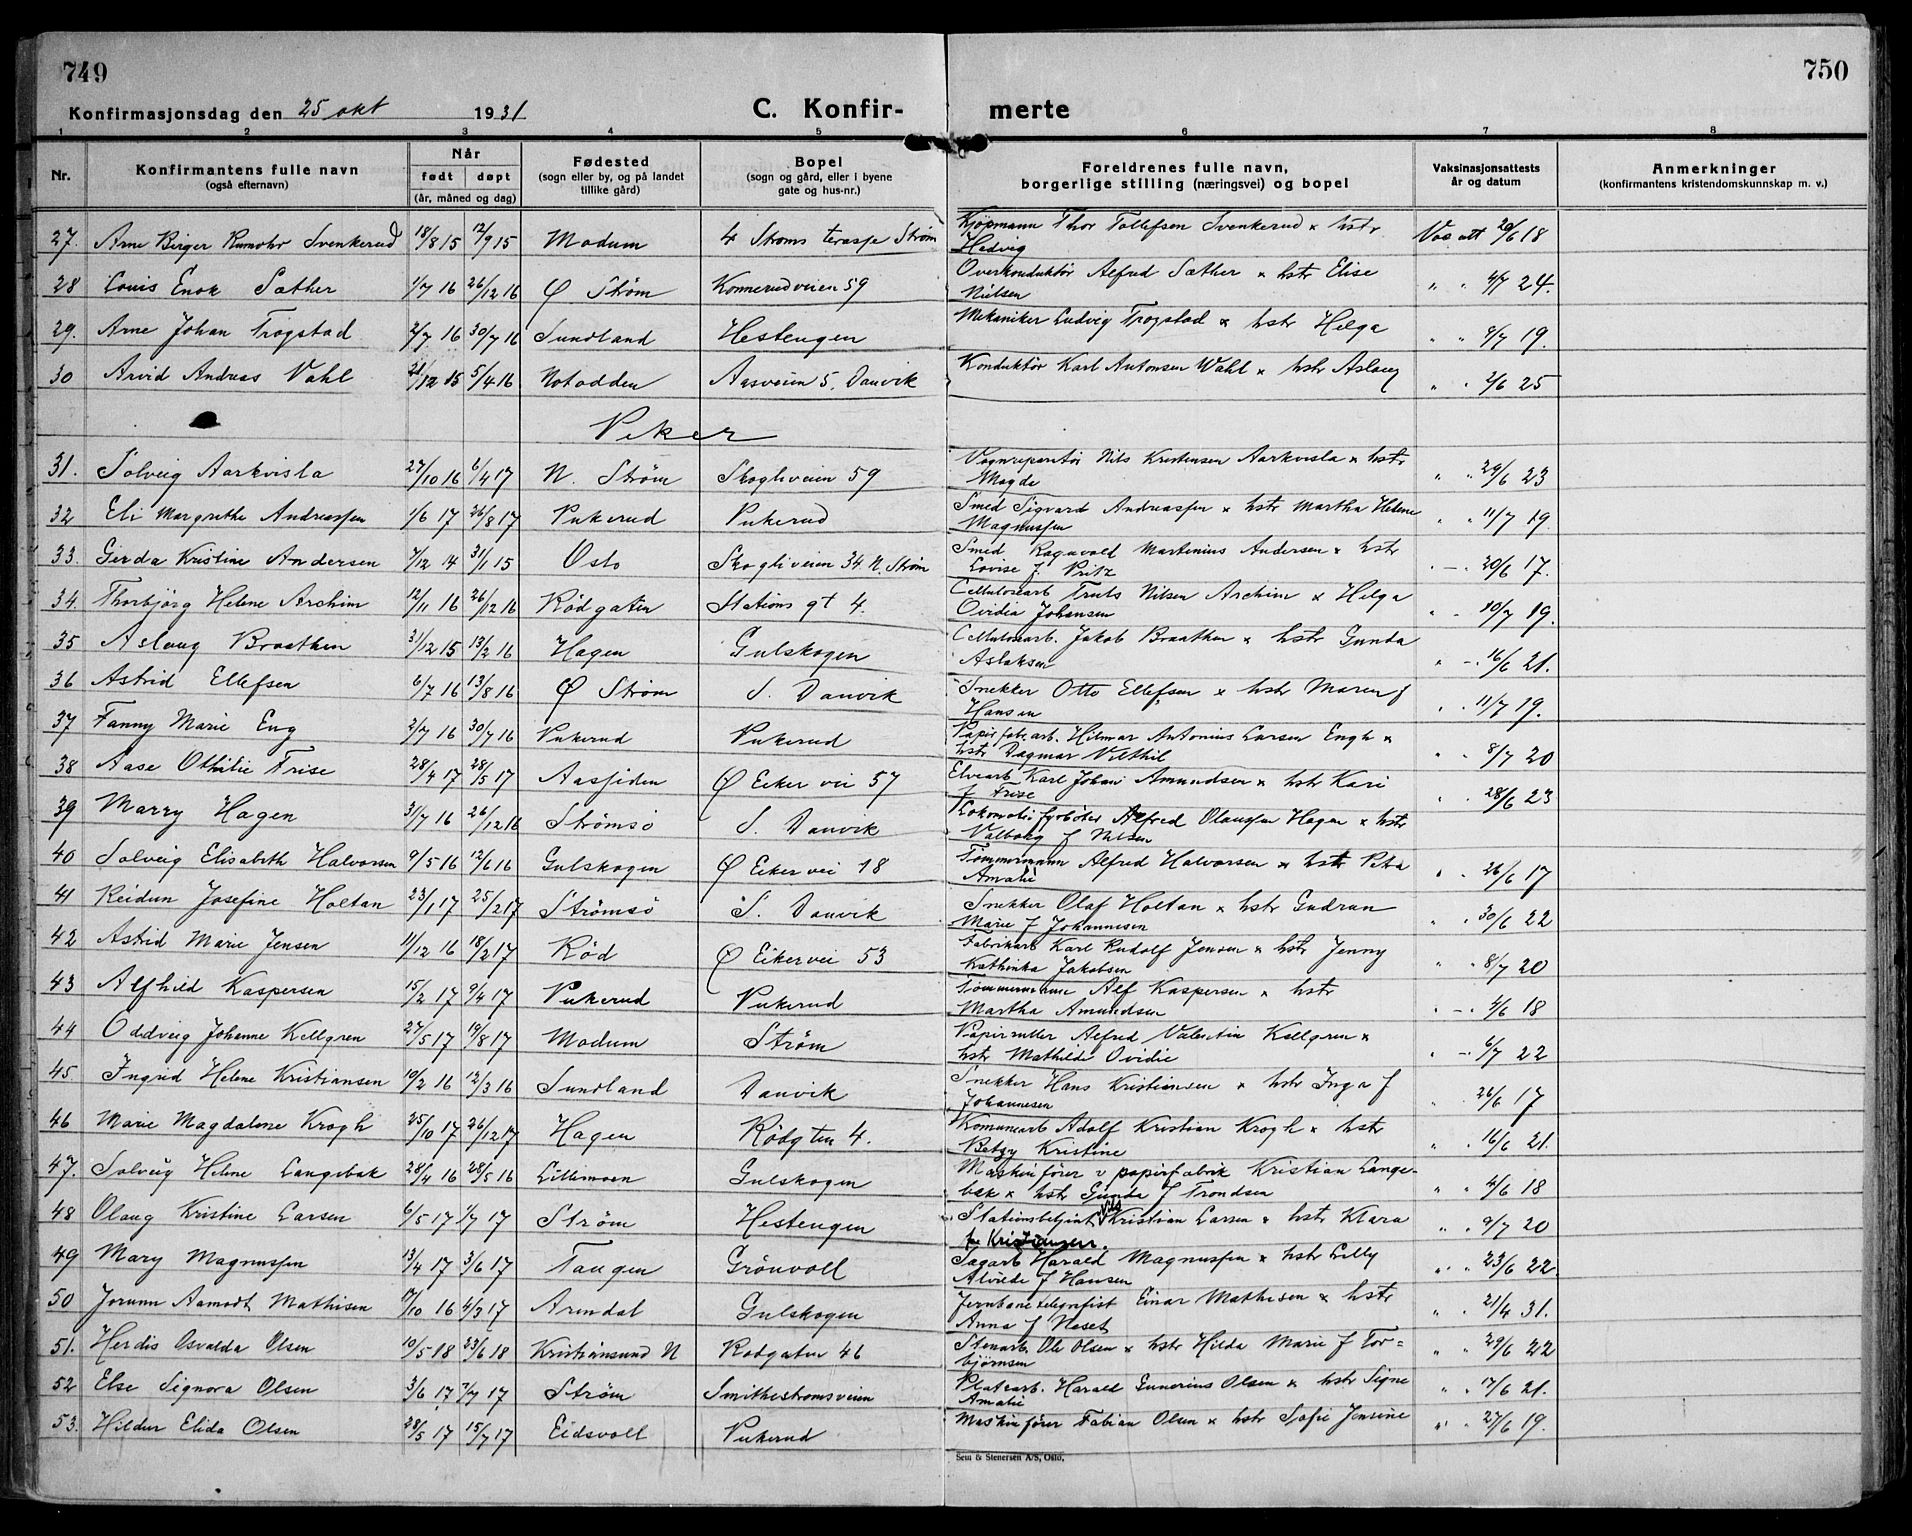 749
750
Konfirmasjonsdag den 25 okt 1931
C. Konfir- merte
1 2 3 4 5 6 7 8
Nr. Konfirmantens fulle navn (også efternavn) Når født døpt (år, måned og dag) Fødested (sogn eller by, og på landet tillike gård) Bopel (sogn og gård, eller i byene gate og hus-nr.) Foreldrenes fulle navn, borgerlige stilling (næringsvei) og bopel Vaksinasjonsattests år og datum Anmerkninger (konfirmantens kristendomskunnskap m. v.)
27. Arne Birger Rumohr Svenkerud 18/8 15 12/9 15 Modum 4 Stroms terasse Strøm Kjøpmann Thor Tollefsen Svenkerud x hstr Hedvig Vac att 20/6 18
28 Louis Enok Sæther 1/7 16 26/12 16 Ø Strøm Konnerudveien 59 Overkonduktør Alfred Sæther x hstr Elise Nielsen " " 4/7 24.
29. Arne Johan Trogstad 2/7 16 30/7 16 Sundland Hestengen Mekaniker Ludvig Trogstad x hstr Helga " " 8/7 19.
30 Arvid Andreas Vahl 21/12 15 5/4 16 Notodden Aasveien 5, Danvik Konduktør Karl Antonsen Wahl x hstr Aslaug " " 2/6 25
Piker
31. Solveig Aarkvisla 27/10 16 6/4 17 N. Strøm Skogliveien 59 Vognreparatør Nils Kristensen Aarkvisla x hstr Magda " " 29/6 23
32 Eli Margrethe Andreassen 1/6 17 26/8 17 Pukerud Pukerud Smed Sigvard Andreassen x hstr Martha Helene Magnussen " " 11/7 19.
33. Gerda Kristine Andersen 7/12 14 31/1 15 Oslo Skogliveien 34 N. Strøm Smed Ragnvald Martinius Andersen x hstr Lovise f. Pritz " - 20/6 17.
34. Thorbjørg Helene Archim 12/11 16 26/12 16 Rödgaten Stations gt 4. Cellulosearb Truls Nilsen Archim x Helga Ovidia Johansen " " 10/7 19.
35 Aslaug Braathen 31/12 15 13/2 16 Hagen Gulskogen Cellulosearb. Jakob Braathen x hstr Gunda Aslaksen " - 16/6 21.
36 Astrid Ellefsen 6/7 16 13/8 16 Ø Strøm S. Danvik Snekker Otto Ellefsen x hstr Maren f Hansen " " 11/7 19.
37 Fanny Marie Eng 2/7 16 30/7 16 Pukerud Pukerud Papirfabr.arb. Hilmar Antonius Larsen Engh x hstr Dagmar Vilthil " " 8/7 20
38 Aase Othilie Frise 28/4 17 28/5 17 Aassiden Ø Eiker vei 57 Elvearb Karl Johan Amundsen x hstr Kari f Frise " " 28/6 23
39 Marry Hagen 31/7 16 26/12 16 Strømsø S. Danvik Lokomotivfyrbøter Alfred Olaussen Hagen x hstr Valborg f Nilsen
40 Solveig Elisabeth Halvorsen 9/5 16 12/6 16 Gulskogen Ø Eiker vei 18 Tømmermann Alfred Halvorsen x hstr Petra Amalie " " 26/6 17
41 Reidun Josefine Holtan 23/1 17 25/2 17 Strømsø S. Danvik Snekker Olaf Holtan x hstr Gudrun Marie f Johannesen " " 30/6 22
42 Astrid Marie Jensen 11/12 16 18/2 17 Röd Ø Eikervei 53 Fabrikarb Karl Rudolf Jensen x hstr Jenny Kathinka Jakobsen " " 8/7 20
43 Alfhild Kaspersen 15/2 17 9/4 17 Pukerud Pukerud Tømmermann Alf Kaspersen x hstr Martha Amundsen " - 4/6 18
44 Oddveig Johanne Kellgren 27/5 17 19/8 17 Modum Strøm Papirruller Alfred Valentin Kellgren x hstr Mathilde Ovidie " - 6/7 22
45. Ingrid Helene Kristiansen 10/2 16 12/3 16 Sundland Danvik Snekker Hans Kristiansen x hstr Inga f Johannesen " " 26/6 17
46 Marie Magdalene Krogh 25/10 17 26/12 17 Hagen Rödgten 4. Komunearb Adolf Kristian Krogh x hstr Betzy Kristine " " 16/6 21.
47. Solveig Helene Langebak 28/4 16 28/5 16 Lillemoen Gulskogen Maskinfører v papirfabrik Kristian Lange- bæk x hstr Gunda f Trondsen " " 4/6 18
48 Olaug Kristine Larsen 6/5 17 1/7 17 Strøm Hestengen Stationsbetjent Nils Kristian Larsen x hstr Klara Kristiansen. " " 9/7 20
49 Mary Magnussen 13/4 17 3/6 17 Tangen Grönvoll Sagarb Harald Magnussen x hstr Lilly Alvilde f Hansen " " 23/6 22
50 Jorunn Aamodt Mathisen 17/10 16 4/3 17 Arendal Gulskogen Jernbanetelegrafist Einar Mathisen x hstr Anna f Neset " " 21/4 31.
51. Herdis Osvalda Olsen 10/5 18 23/6 18 Kristiansund N Rodgaten 46 Stenarb. Ole Olsen x hstr Hilda Marie f Tor= bjørnsen " " 29/6 22
52 Else Signora Olsen 3/6 17 7/7 17 Strøm Smithestromsveien Platearb. Harald Gunerius Olsen x hstr Signe Amalie " " 17/6 21.
53. Hildur Elida Olsen 28/5 17 15/7 17 Eidsvoll Pukerud Maskinfører Fabian Olsen x hstr Sofie Jensine " " 27/6 19.
Sem & Stenersen A/S, Oslo.